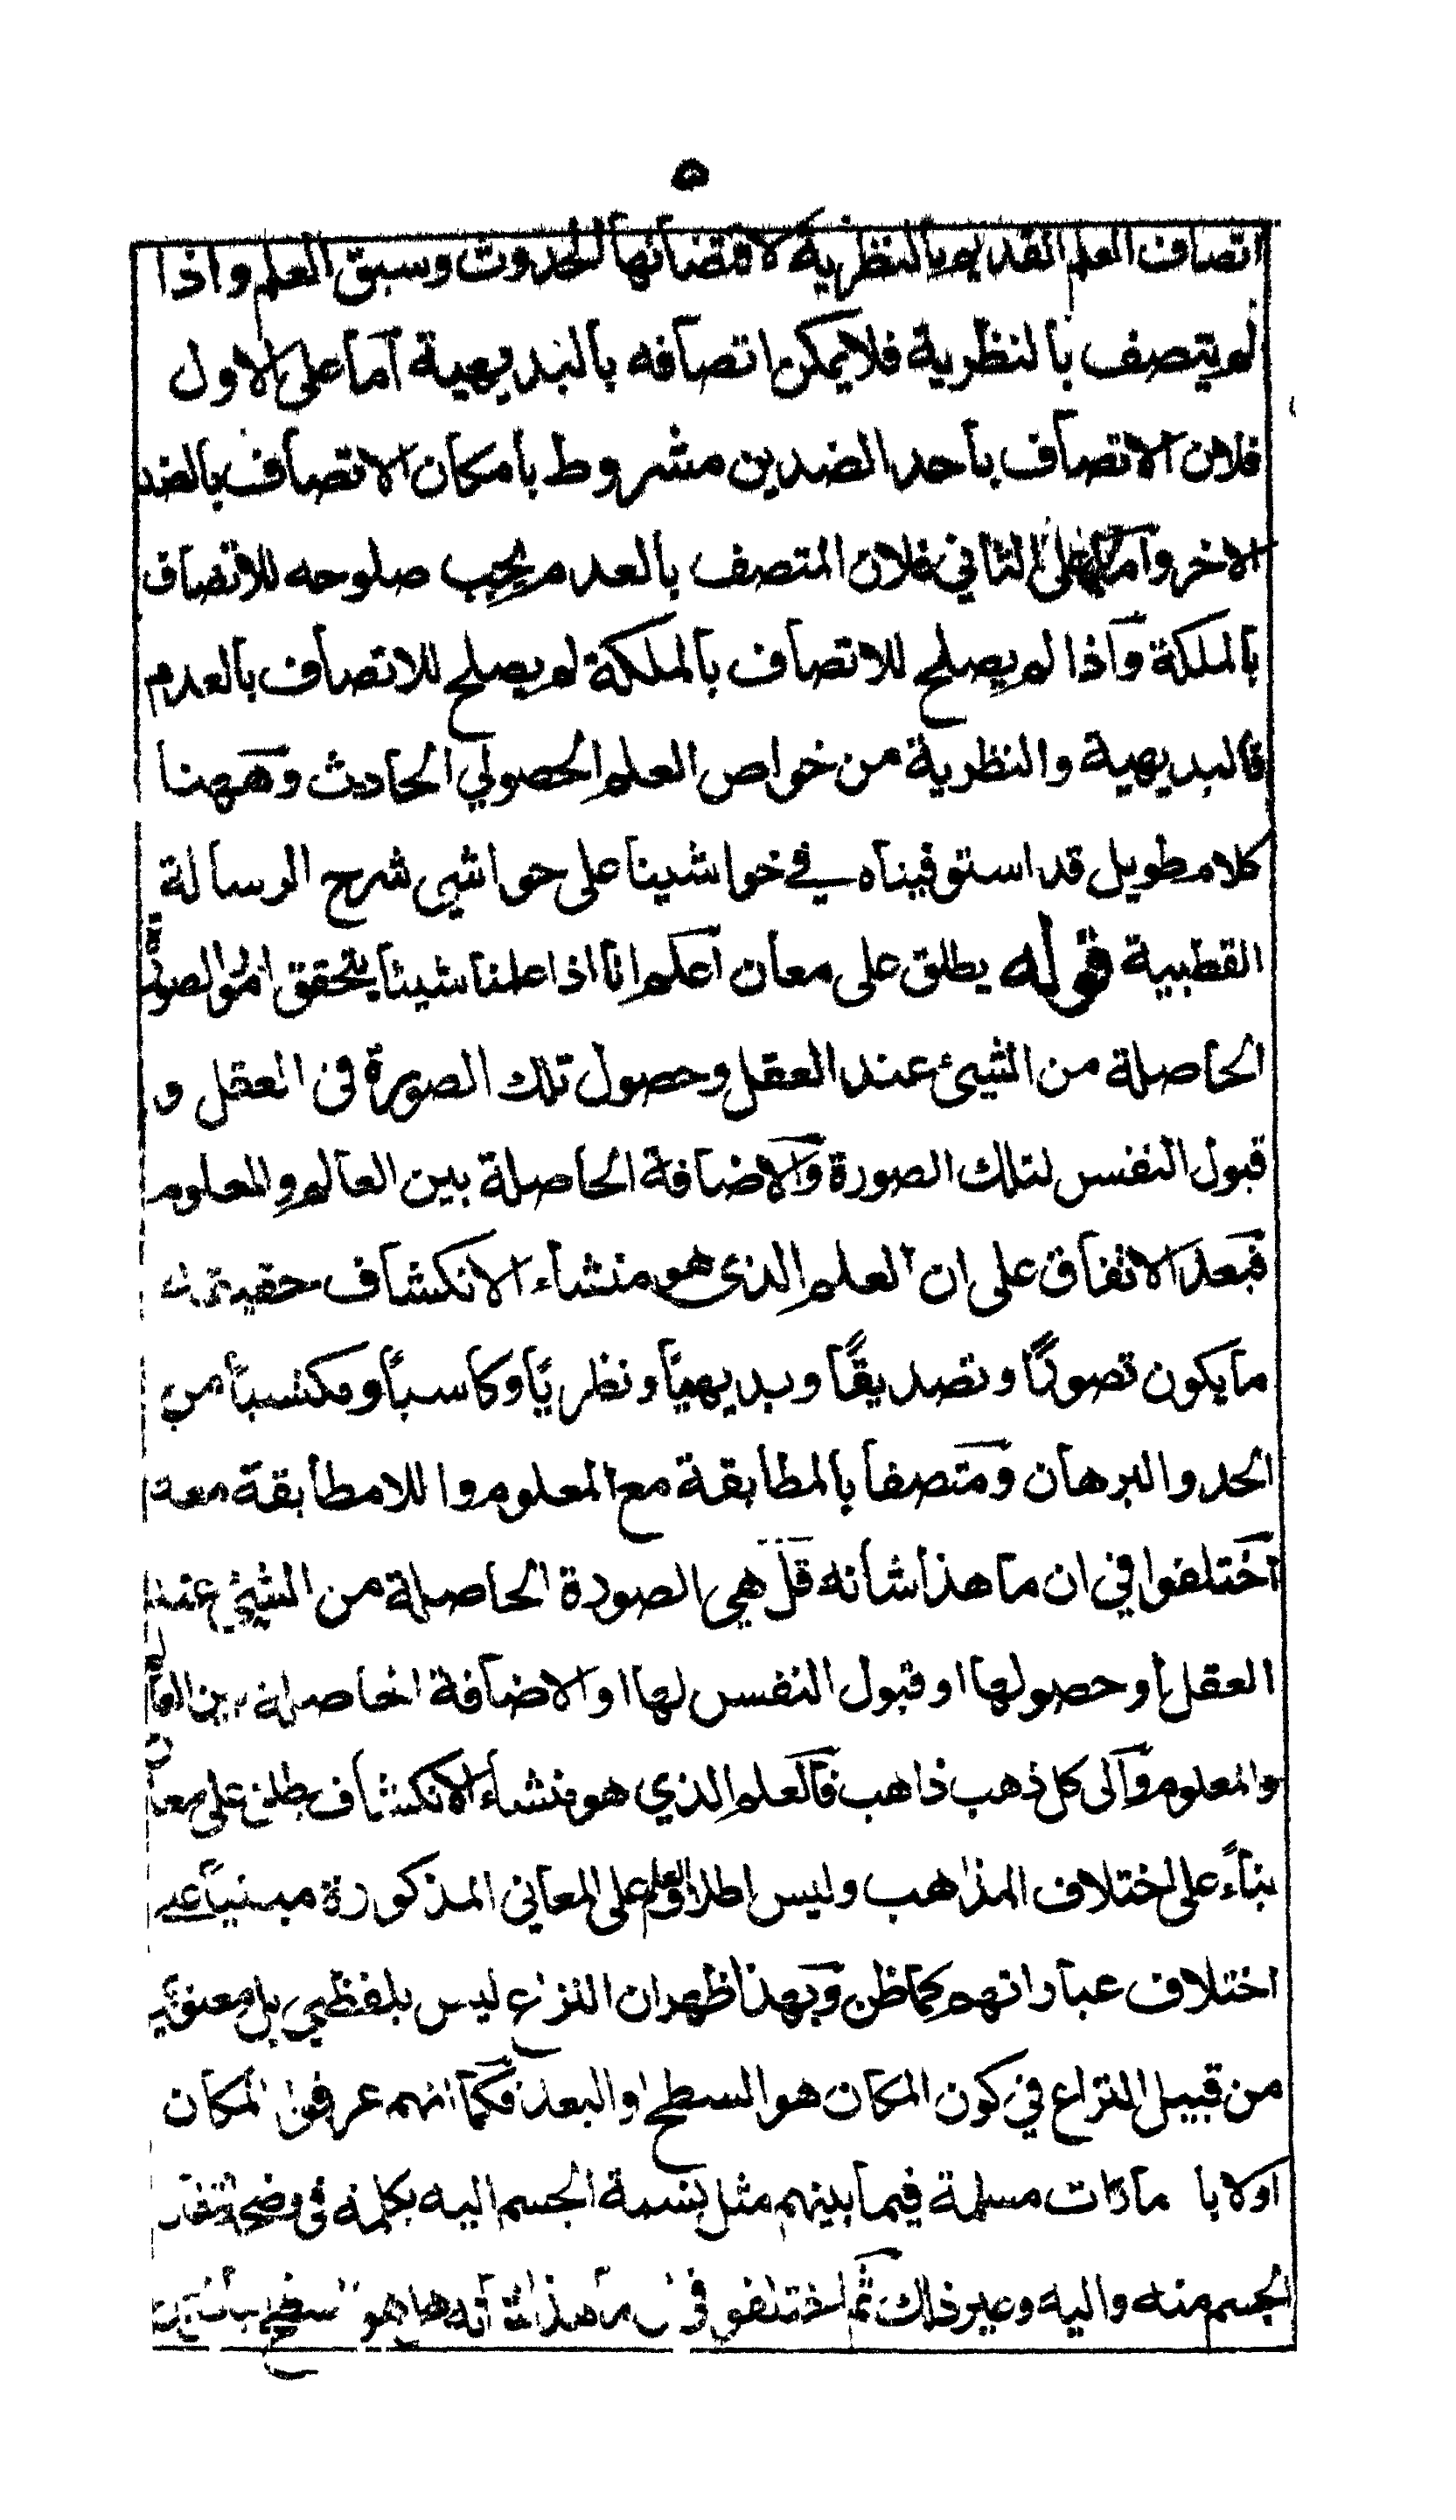 ٥
اتصاف العلم القديم بالنظرية لاقتضائها الحدوث وسبق العلم واذا
لم يتصف بالنظرية فلا يمكن اتصافه بالبديهية اما على الاول
فلان الاتصاف باحد الضدين مشروط بامكان الاتصاف بالضد
الاخر واما على الثاني فلان المتصف بالعدم يجب صلوحه للاتصاف
بالملكة واذا لم يصلح للاتصاف بالملكة لم يصلح للاتصاف بالعدم
فالبديهية والنظرية من خواص العلم الحصولي الحادث وههنا
كلام طويل قد استوفيناه في حواشينا على حواشي شرح الرسالة
القطبية قوله يطلق على معان اعلم انا اذا علمنا شيئا يتحقق امور الصورة
الحاصلة من الشيئ عند العقل وحصول تلك الصورة فى العقل و
قبول النفس لتلك الصورة والاضافة الحاصلة بين العالم والمعلوم
فبعد الاتفاق على ان العلم الذى هو منشاء الانكشاف حقيقة
ما يكون تصورًا وتصديقًا وبديهيًا ونظريًا وكاسبًا ومكتسبًا من
الحد والبرهان ومتصفا بالمطابقة مع المعلوم واللامطابقة معه
اختلفوا في ان ما هذا شانه هل هي الصورة الحاصلة من الشيئ عند
العقل او حصولها او قبول النفس لها او الاضافة الحاصلة بين العالم
والمعلوم والى كل ذهب ذاهب فالعلم الذي هو منشاء الانكشاف يطلق على معان
بناءً على اختلاف المذاهب وليس اطلاق العلم على المعاني المذكورة مبنيًا على
اختلاف عباراتهم كما ظن وبهذا ظهر ان النزاع ليس بلفظي بل معنوي
من قبيل النزاع في كون المكان هو السطح او البعد فكما انهم عرفوا المكان
اولا با مارات مسلمة فيما بينهم مثل نسبة الجسم اليه بكلمة في وصحة انتقال
الجسم منه واليه وغير ذلك ثم اختلفوا في ان ما هذا شانه هل هو السطح